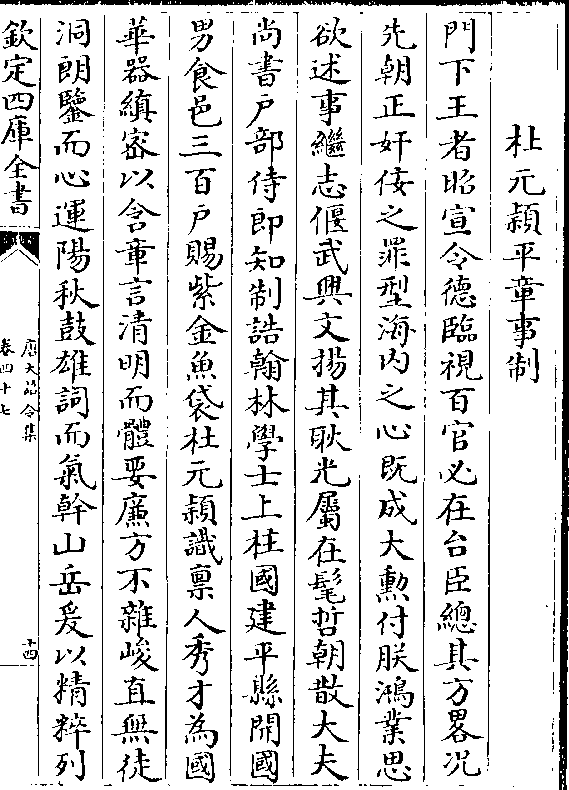 杜元頴平章事制
門下王者昭宣令德臨視百官必在台臣總其方畧况
先朝正奸佞之罪型海内之心既成大勲付朕鴻業思
欲述事繼志偃武興文揚其耿光屬在髦哲朝散大夫
尚書戸部侍郎知制誥翰林學士上柱國建平縣開國
男食邑三百戸賜紫金魚袋杜元頴識禀人秀才為國
華器縝宻以含章言清明而體要廉方不雜峻直無徒
洞朗鑒而心運陽秋鼓雄詞而氣幹山岳爰以精粹列
欽定四庫全書
唐大詔令集
卷四十七
十四